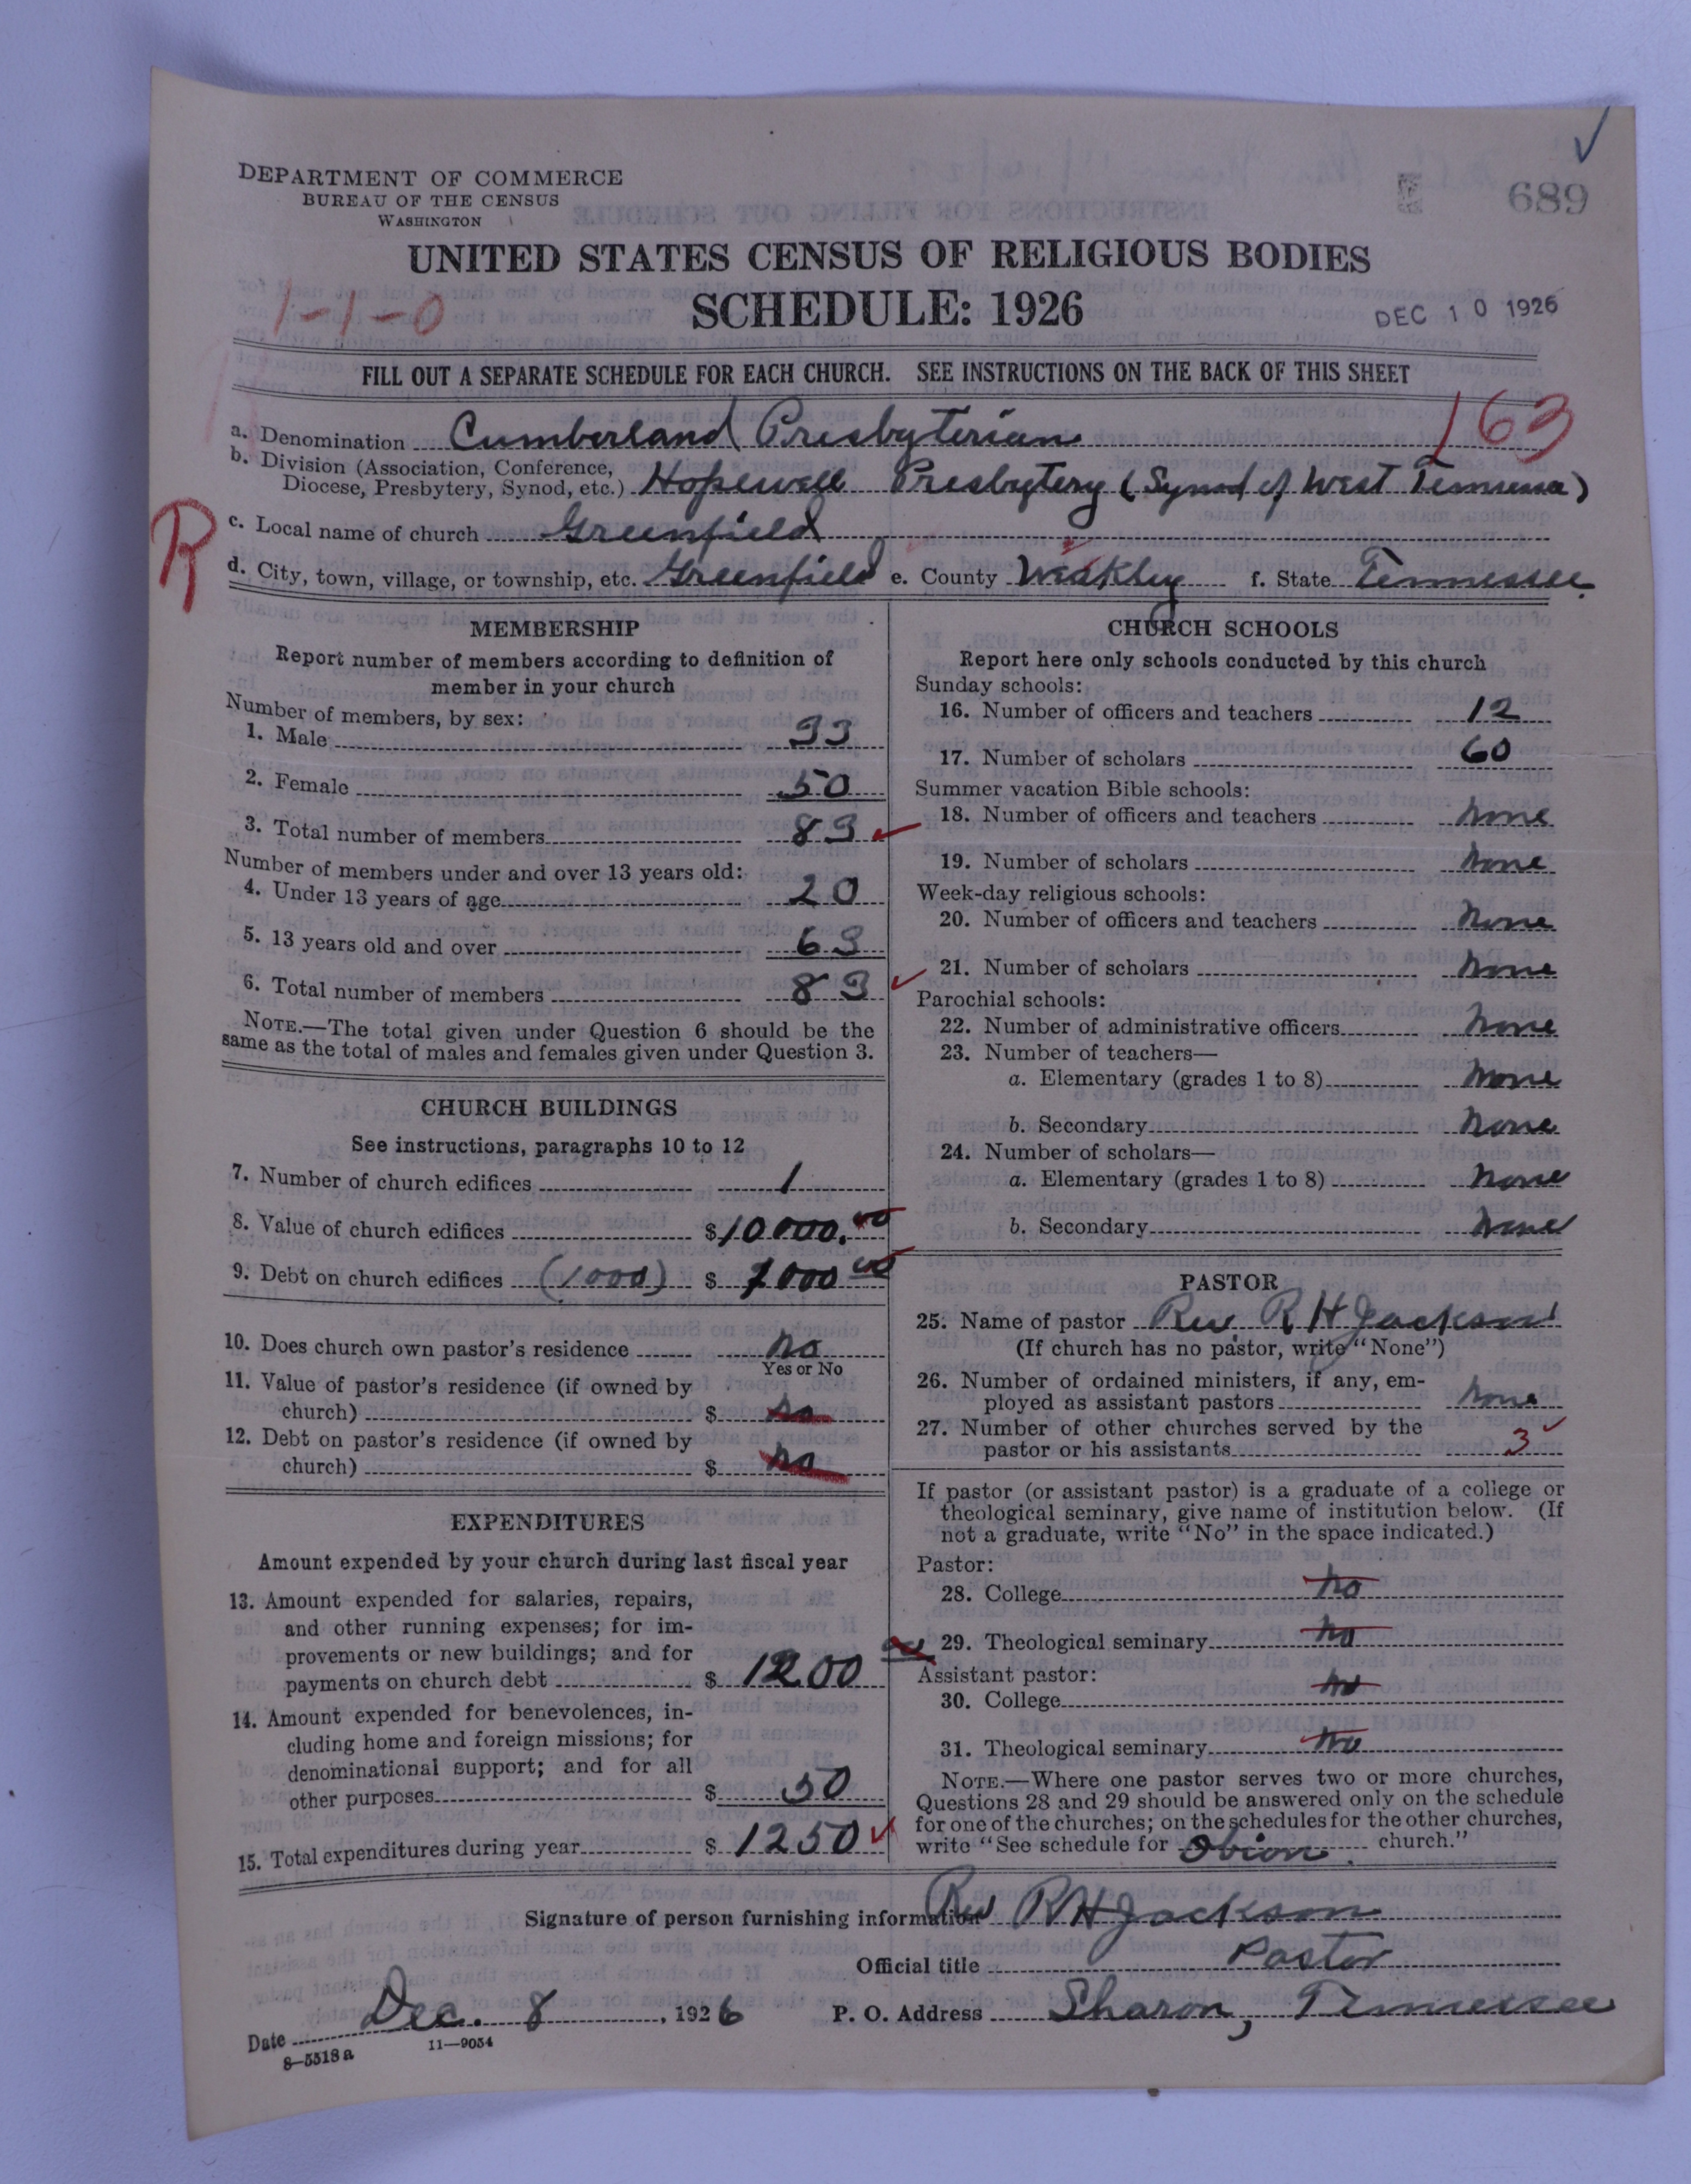 DEPARTMENT OF COMMERCE
BUREAU OF THE CENSUS
WASHINGTON
689
UNITED STATES CENSUS OF RELIGIOUS BODIES
1-1-0
SCHEDULE: 1926
DEC 10 1926
FILL OUT A SEPARATE SCHEDULE FOR EACH CHURCH. SEE INSTRUCTIONS ON THE BACK OF THIS SHEET
163
a. Denomination Cumberland Presbyterian
b. Division (Association, Conference,
Diocese, Presbytery, Synod, etc.) Hopewell Presbytery (Synod of West Tennessee)
R
c. Local name of church Greenfield
d. City, town, village, or township, etc. Greenfield e. County Weakley f. State Tennessee.
MEMBERSHIP
Report number of members according to definition of
member in your church
Number of members, by sex:
1. Male 33
2. Female 50
3. Total number of members 83
Number of members under and over 13 years old:
4. Under 13 years of age 20
5. 13 years old and over 63
6. Total number of members 83
NOTE.—The total given under Question 6 should be the
same as the total of males and females given under Question 3.
CHURCH BUILDINGS
See instructions, paragraphs 10 to 12
7. Number of church edifices 1
8. Value of church edifices $10000.00
9. Debt on church edifices (1000) $ 1000 00
10. Does church own pastor's residence no
Yes or No
11. Value of pastor's residence (if owned by
church) $ no
12. Debt on pastor's residence (if owned by
church) $ no
EXPENDITURES
Amount expended by your church during last fiscal year
13. Amount expended for salaries, repairs,
and other running expenses; for im-
provements or new buildings; and for
payments on church debt $ 1200 00
14. Amount expended for benevolences, in-
cluding home and foreign missions; for
denominational support; and for all
other purposes $ 50
15. Total expenditures during year $ 1250
CHURCH SCHOOLS
Report here only schools conducted by this church
Sunday schools:
16. Number of officers and teachers 12
17. Number of scholars 60
Summer vacation Bible schools:
18. Number of officers and teachers none
19. Number of scholars none
Week-day religious schools:
20. Number of officers and teachers none
21. Number of scholars none
Parochial schools:
22. Number of administrative officers none
23. Number of teachers—
a. Elementary (grades 1 to 8) none
b. Secondary none
24. Number of scholars—
a. Elementary (grades 1 to 8) none
b. Secondary none
PASTOR
25. Name of pastor Rev. R H Jackson
(If church has no pastor, write "None")
26. Number of ordained ministers, if any, em-
ployed as assistant pastors none
27. Number of other churches served by the
pastor or his assistants 3
If pastor (or assistant pastor) is a graduate of a college or
theological seminary, give name of institution below. (If
not a graduate, write "No" in the space indicated.)
Pastor:
28. College no
29. Theological seminary no
Assistant pastor:
30. College no
31. Theological seminary no
NOTE.—Where one pastor serves two or more churches,
Questions 28 and 29 should be answered only on the schedule
for one of the churches; on the schedules for the other churches,
write "See schedule for Obion. church."
Signature of person furnishing information Rev R H Jackson
Official title Pastor
Date Dec. 8, 1926 P. O. Address Sharon, Tennessee
8-5518a 11-9054